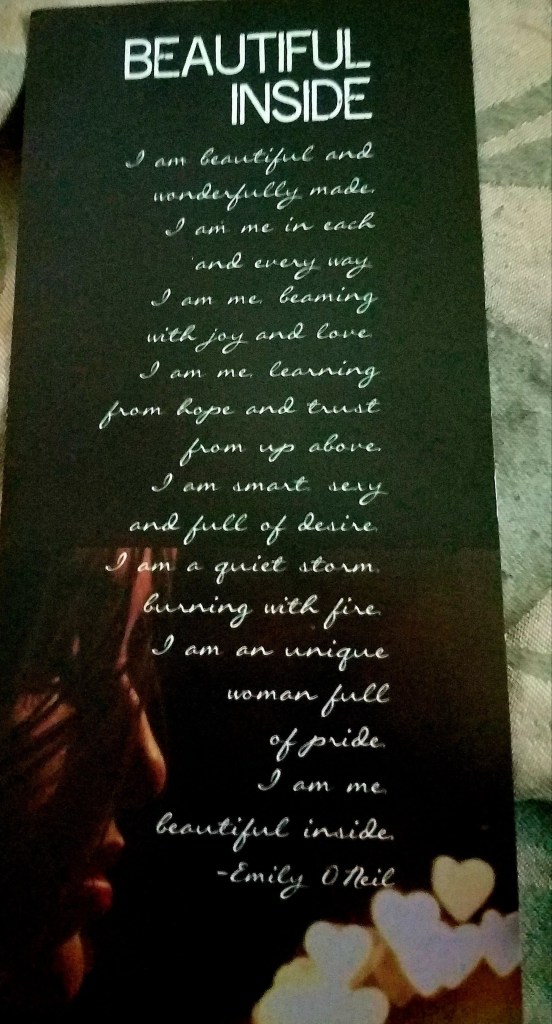 BEAUTIFUL
INSIDE
I am beautiful and
wonderfully made.
I am me in each
and every way
I am me, beaming
with joy and love.
I am me, learning
from hope and trust
from up above.
I am smart, sexy
and full of desire.
I am a quiet storm,
burning with fire.
I am an unique
woman full
of pride.
I am me,
beautiful inside.
-Emily O'Neil